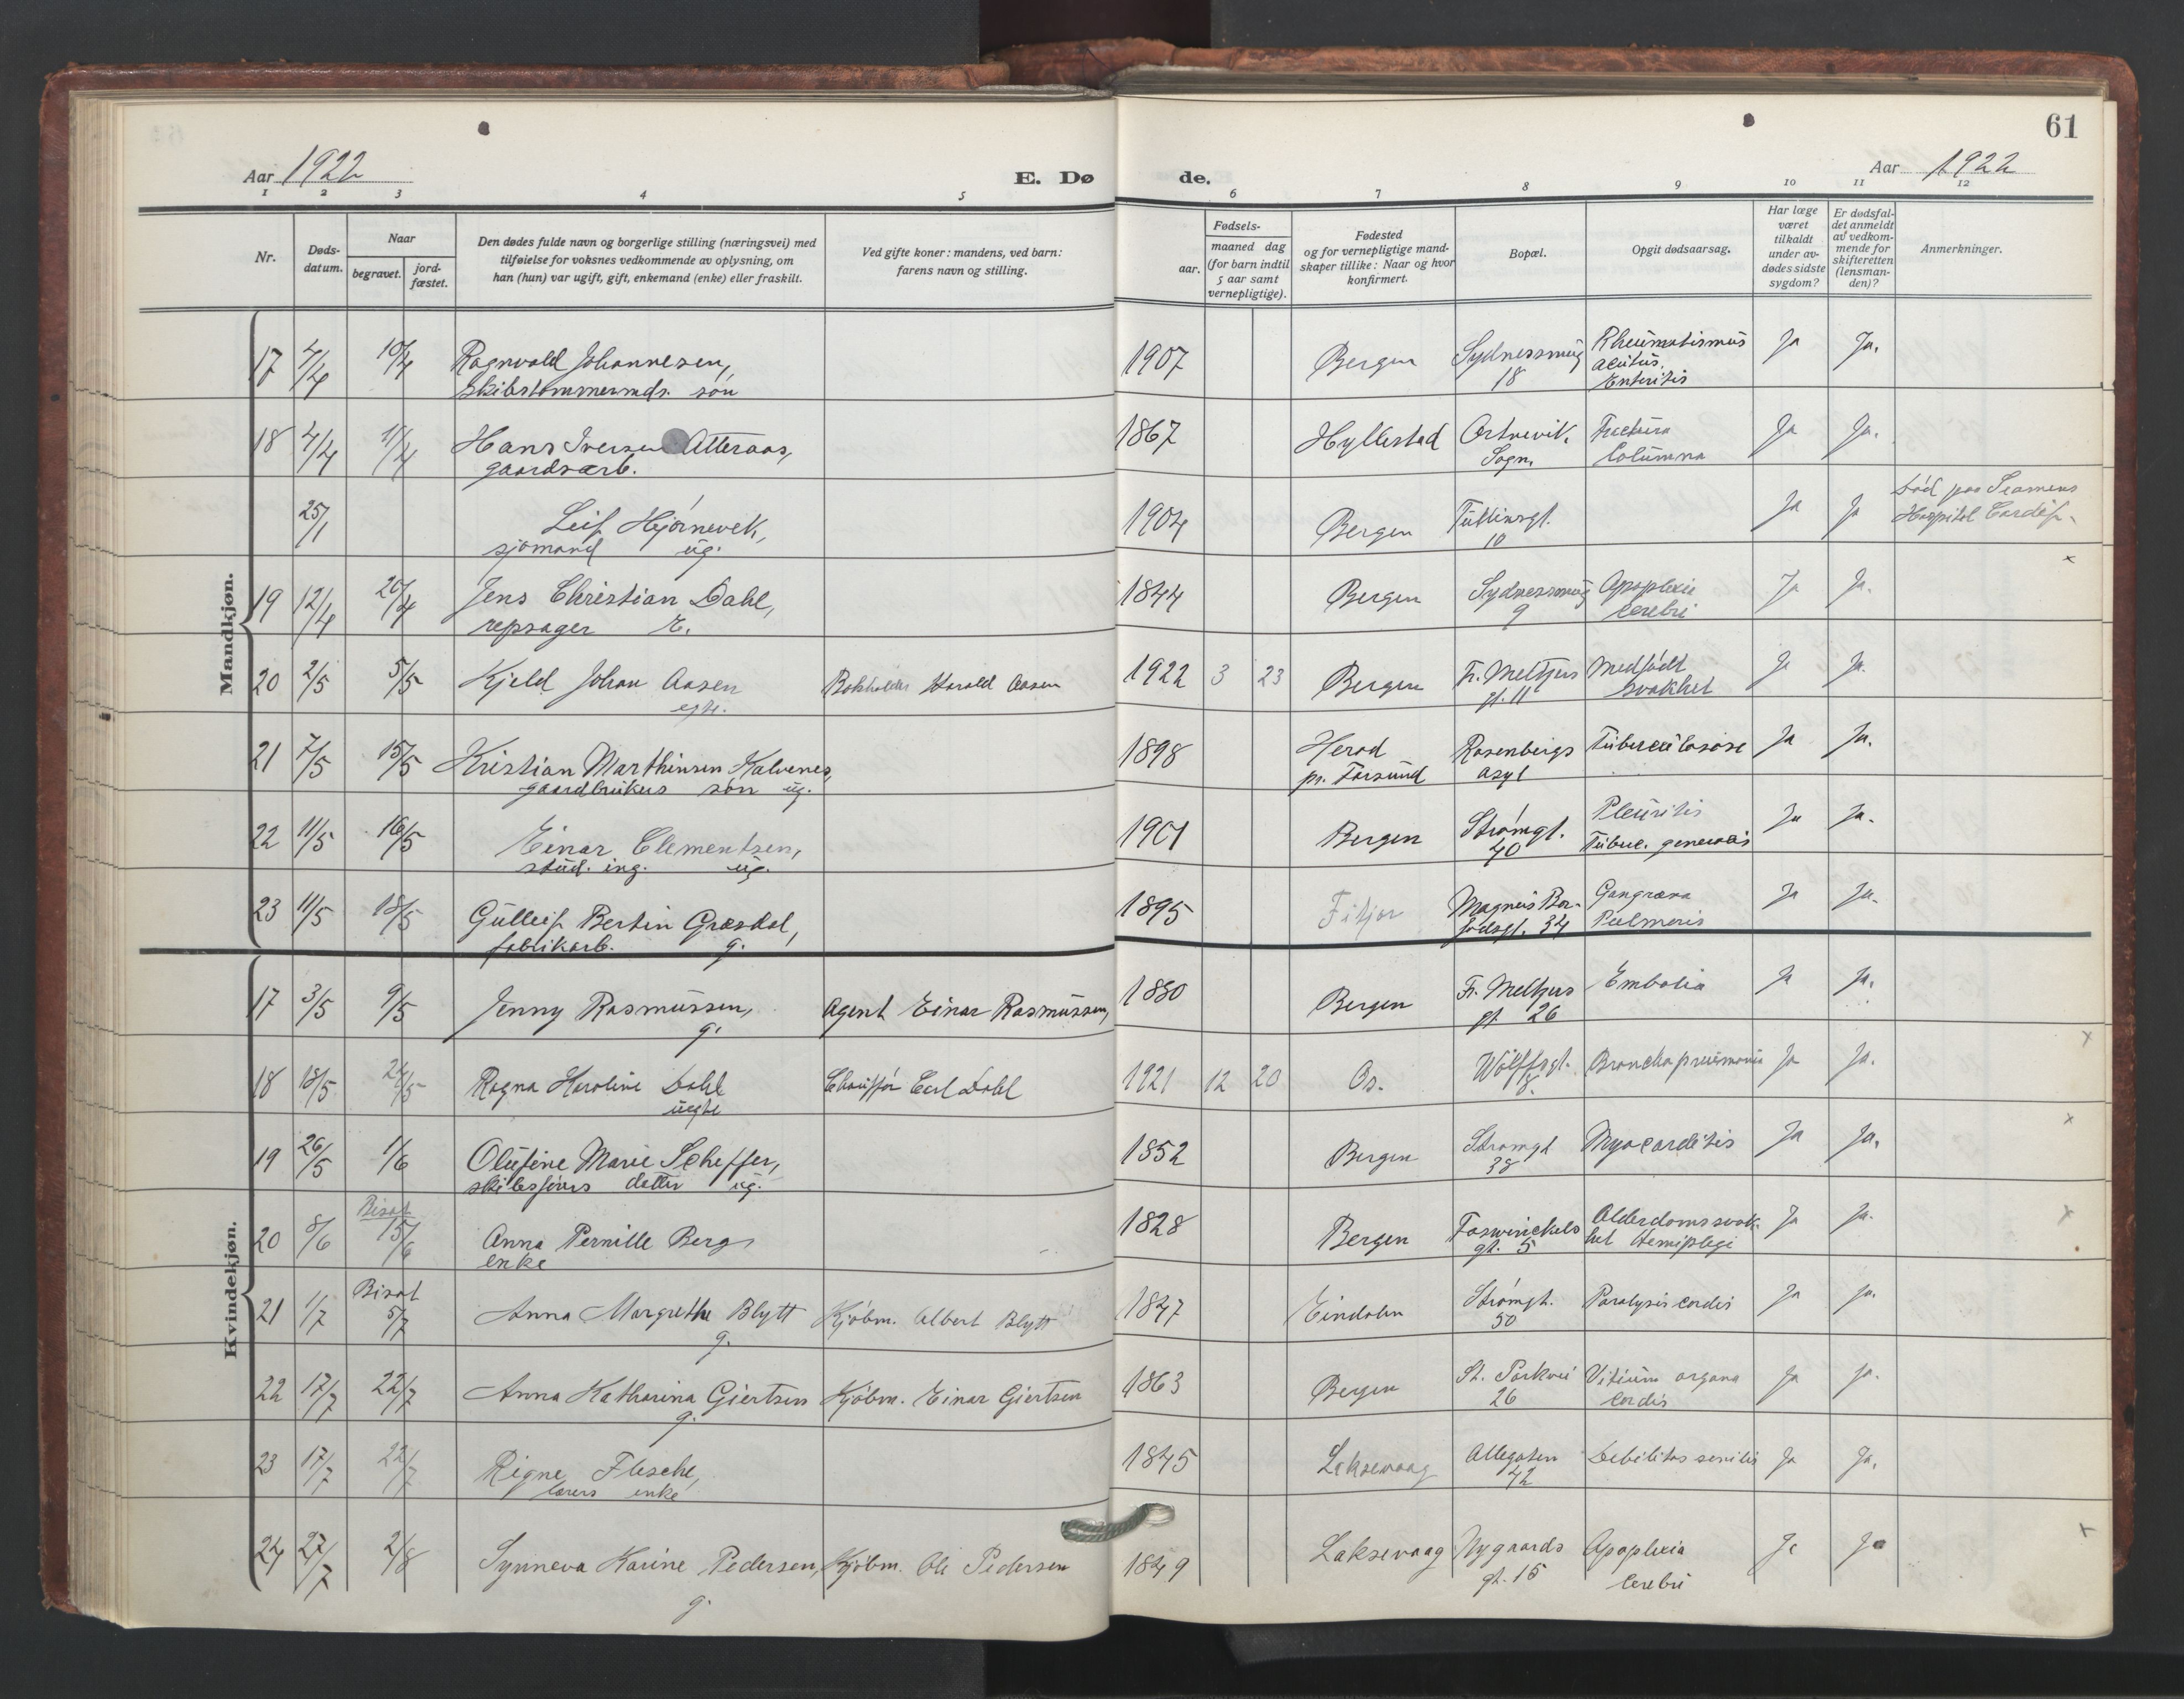 61
Aar 1922
E. Dø de.
Aar 1922
1 2 3 4 5 6 7 8 9 10 11 12
Nr.
Døds-
datum.
Naar
begravet.
jord-
fæstet.
Den dødes fulde navn og borgerlige stilling (næringsvei) med
tilføielse for voksnes vedkommende av oplysning, om
han (hun) var ugift, gift, enkemand (enke) eller fraskilt.
Ved gifte koner: mandens, ved barn:
farens navn og stilling.
Fødsels-
aar.
maaned dag
(for barn indtil
5 aar samt
vernepligtige).
Fødested
og for vernepligtige mand-
skaper tillike: Naar og hvor
konfirmert.
Bopæl.
Opgit dødsaarsag.
Har læge
været
tilkaldt
under av-
dødes sidste
sygdom?
Er dødsfal-
det anmeldt
av vedkom-
mende for
skifteretten
(lensman-
den)?
Anmerkninger.
Mandkjøn.
17 4/4 10/4 Ragnvald Johannesen, 1907 Bergen Sydnessmug Rheumatismus Ja Ja.
skibstømmermds. søn 18 acutus.
Enteritis
18 4/4 11/4 Hans Iversen Atteraas, 1867 Hyllestad Ortnevik, Fractura Ja Ja.
gaardsarb. Sogn. Columna
25/1 Leif Hjørnevek, 1904 Bergen Tullinsgt. Ja Ja Død paa Seamens
sjømand ug. 10 Hospital Cardif.
19 12/4 20/4 Jens Christian Dahl, 1844 Bergen Sydnessmug Apoplexie Ja Ja. x
repsager E. 9 cerebri
20 2/5 5/5 Kjeld Johan Aasen Bokholder Harald Aasen 1922 3 23 Bergen Fr. Meltzers Medfødt Ja Ja.
egte. gt. 11 svakhet
21 7/5 15/5 Kristian Marthinsen Kalvenes, 1898 Herad Rosenbergs Tuberculosose Ja Ja.
gaardbrukers søn ug. pr. Farsund asyl
22 11/5 16/5 Einar Clementsen, 1901 Bergen Strømgt. Pleuritis Ja Ja.
stud. ing. ug. 40 Tuberc. generalis
23 11/5 18/5 Gulleif Bertin Græsdal, 1895 Fitjar Magnus Bar- Gangræna Ja Ja.
fabrikarb. g. fodsgt. 34 Pulmonis
Kvindekjøn.
17 3/5 9/5 Jenny Rasmussen, Agent Einar Rasmussen, 1880 Bergen Fr. Meltzers Embolia Ja Ja.
g. gt. 26
18 18/5 24/5 Ragna Karoline Dahl Chauffør Carl Dahl 1921 12 20 Os. Wolffsgt. Bronchopneumonia Ja Ja. x
uegte 8.
19 26/5 1/6 Olufine Marie Scheffer, 1852 Bergen Strømgt Myocarditis Ja Ja. x
skibsførers datter ug. 38
20 8/6 Bisat 15/6 Anna Pernille Berg 1828 Bergen Foswinckels Alderdomssvak- Ja Ja. x
enke gt. 5 het Hemiplegi
21 1/7 Bisat 5/7 Anna Margrethe Blytt Kjøbm. Albert Blytt 1847 Eindalen Strømgt. Paralysis cordis Ja Ja.
g. 50
22 17/7 22/7 Anna Katharina Giertsen Kjøbm. Einar Giertsen 1863 Bergen St. Parkvei Vitium organa Ja Ja.
g. 26 Cordis
23 17/7 22/7 Rigne Flesche, 1845 Laksevaag Allegaten Debilitas senilis Ja Ja.
lærers enke 42
24 27/7 2/8 Synneva Karine Pedersen, Kjøbm. Ole Pedersen 1849 Laksevaag Nygaards Apoplexia Ja Ja x
g. gt. 15 Cerebri